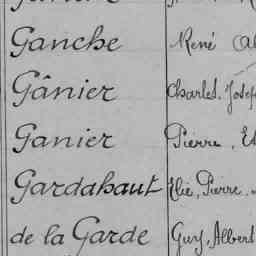 Ganche René
Gânier Charles, Josep
Ganier Pierre, E
Gardahaut Elie, Pierre,
de la Garde Guy, Albert